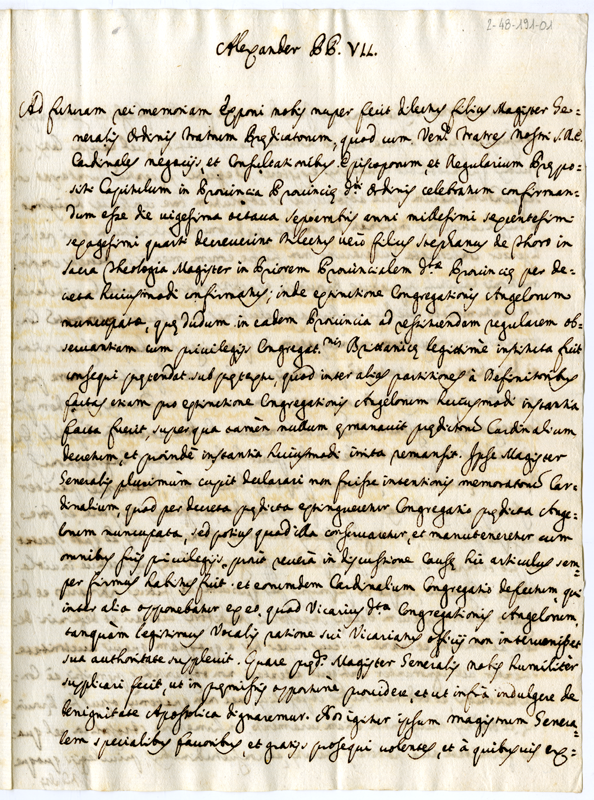 2-48-191-01
Alexander PP. VII.
Ad futuram rei memoriam Exponi nobis nuper fecit dilectus filius Magister Ge=
neralis Ordinis Fratrum Prædicatorum, quod cum Ven. Fratres Nostri S.R.E.
Cardinales negocijs, et Consultationibus Episcoporum, et Regularium Præpo=
siti Capitulum in Provincia Provinciæ dti Ordinis celebratum confirman=
dum esse die vigesima octava septembris anni millesimi sexcentesimi
sexagesimi quarti decreverint Dilectus vero filius Stephanus de Thoro in
sacra Theologia Magister in Priorem Provincialem dtæ Provinciæ per de=
creta huiusmodi confirmatus; inde extinctione Congregationis Angelorum
nuncupatæ, quæ dudum in eadem Provincia ad restituendam regularem ob=
servantiam cum privilegijs Congregat.nis Brittanicæ legittimè instituta fuit
consequi prætendat sub prætextu, quod inter alias partitiones à Definitoribus
factas etiam pro extinctione Congregationis Angelorum huiusmodi instantia
facta fuerit, super qua tamen nullum emanavit prædictorũ Cardinalium
decretum, et proindè instantia huiusmodi irrita remansit. Ipse Magister
Generalis plurimùm cupit declarari non fuisse intentionis memoratorũ Car=
dinalium, quod per decreta prædicta extingueretur Congregatio prædicta Ange=
lorum nuncupata, sed potius quod illa conservaretur, et manuteneretur cum
omnibus suis privilegijs, prout reverà in discussione Causæ hic articulus sem=
per firmus habitus fuit. et eorumdem Cardinalium Congregatio defectum, qui
inter alia opponebatur ex eo, quod Vicarius dtæ Congregationis Angelorum,
tanquàm legitimus Vocalis ratione sui Vicariatus officij non intervenisset
sua authoritate supplevit. Quare præd. Magister Generalis nobis humiliter
supplicari fecit, ut in præmissis opportunè providere, et ut infrà indulgere de
benignitate Apostolica dignaremur. Nos igitur ipsum magistrum Genera=
lem specialibus favoribus, et gratijs prosequi volentes, et à quibusvis ex=